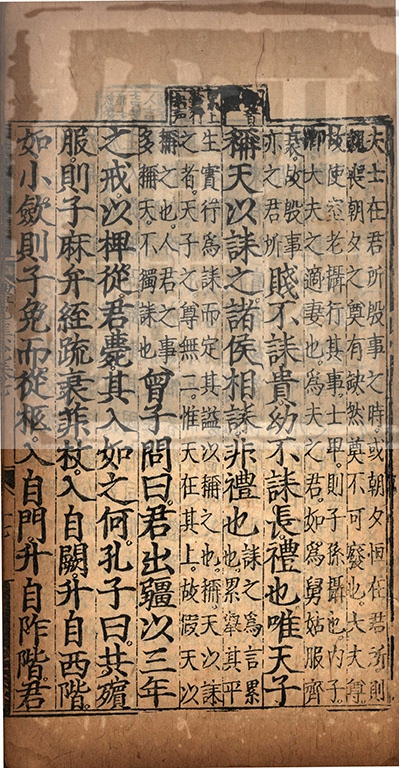 夫士在君所殷事之時或朝夕恒在君所則
親喪朝夕之奠有缺然奠不可廢也大夫尊
故使室老攝行其事士卑則子孫攝也内子
卿大夫之適妻也為夫之君如為舅姑服齊
衰故殷事
亦之君所
賤不誄貴幼不誄長禮也唯天子
稱天以誄之諸侯相誄非禮也
誄之為言累
也累舉其平
生實行為誄而定其謚以稱之也稱天以誄
之者天子之尊無二惟天在其上故假天以
稱之也人君之事
多稱天不獨誄也
曾子問曰君出疆以三年
之戒以椑從君薨其入如之何孔子曰共殯
服則子麻弁絰疏衰菲杖入自闕升自西階
如小歛則子免而從柩入自門升自阼階君